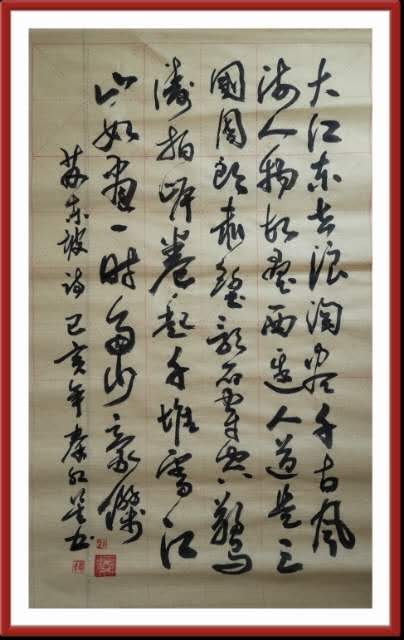 大江东去浪淘尽千古风
流人物故垒西边人道是三
國周郎赤壁乱石穿空驚
涛拍岸卷起千堆雪江
山如画一时多少豪傑
苏东坡诗己亥年秦红书